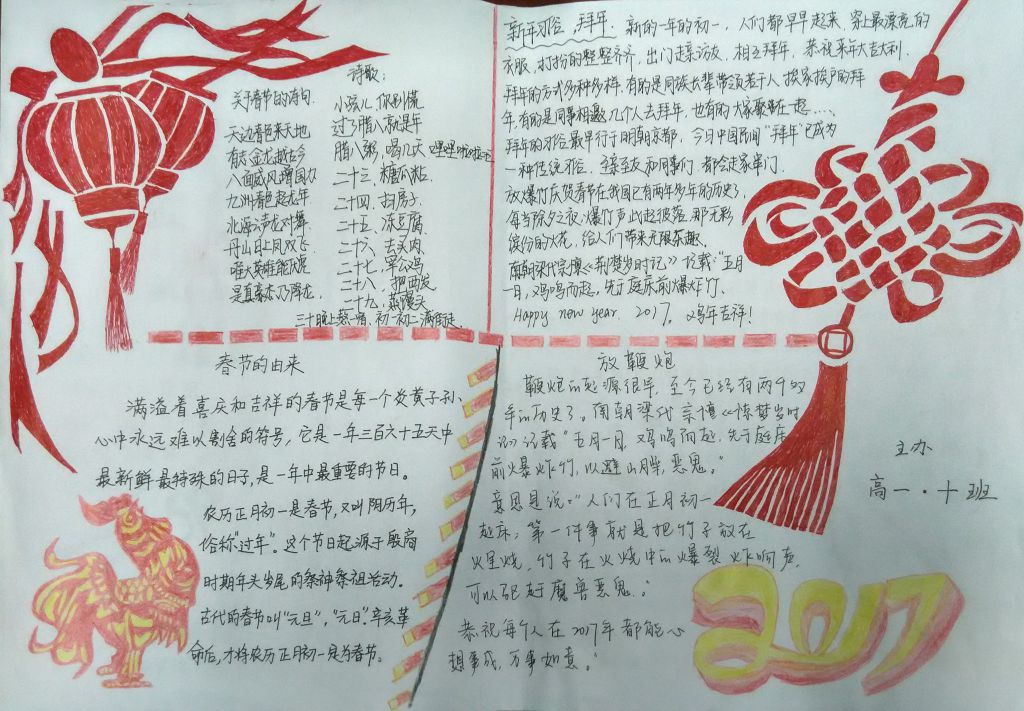 诗歌:
关于春节的诗句.
天边春色来天地
有志金龙越古今
八面威风增国力
九州春色起龙年
北海
丹山日上凤双飞
唯大英雄能伏虎
是真豪杰乃降龙.
小孩儿,你别慌
过了腊八就是年
腊八粥,喝几天 哩哩啦啦
二十三、糖瓜粘.
二十四、扫房子.
二十五、冻豆腐.
二十六、去买肉.
二十七、宰公鸡
二十八、把面发
二十九、蒸馒头
三十晚上熬一宿、初一初二满街走.
新年习俗,拜年. 新的一年的初一,人们都早早起来,穿上最漂亮的
衣服,打扮的整整齐齐,出门去走亲访友,相互拜年,恭祝来年大吉大利.
拜年的方式多种多样,有的是同族长辈带领若干人挨家挨户的拜
年,有的是同事相邀几个人去拜年,也有的大家聚在一起……
拜年的习俗最早行于明朝京都,今日中国民间“拜年”已成为
一种传统习俗,至亲至友和同事们,都会走家串门.
放爆竹庆贺春节在我国已有两千多年的历史了,
每当除夕之夜,爆竹声此起彼落,那五彩
缤纷的火花,给人们带来无限乐趣.
南朝梁代宗懔《荆楚岁时记》记载:“五月
一日,鸡鸣而起,先于庭前爆炸竹.
Happy new year, 2017. 鸡年吉祥!
春节的由来
满溢着喜庆和吉祥的春节是每一个炎黄子孙、
心中永远难以割舍的符号,它是一年三百六十五天中
最新鲜最特殊的日子,是一年中最重要的节日。
农历正月初一是春节,又叫阴历年,
俗称“过年”。这个节日起源于殷商
时期年头岁尾的祭神祭祖活动。
古代的春节叫“元旦”,“元日”.辛亥革
命后,才将农历正月初一是为春节。
放鞭炮
鞭炮的起源很早,至今已经有两千多
年的历史了。南朝梁代宗懔《荆楚岁时
记》记载“五月一日,鸡鸣而起,先于庭
前爆炸竹,以避山臊,恶鬼。”
意思是说:“人们在正月初一
起床,第一件事就是把竹子放在
火里烧,竹子在火烧中的爆裂炸响声,
可以驱赶魔兽恶鬼.”
恭祝每个人在2017年都能心
想事成,万事如意。”
主办
高一·十班
2017